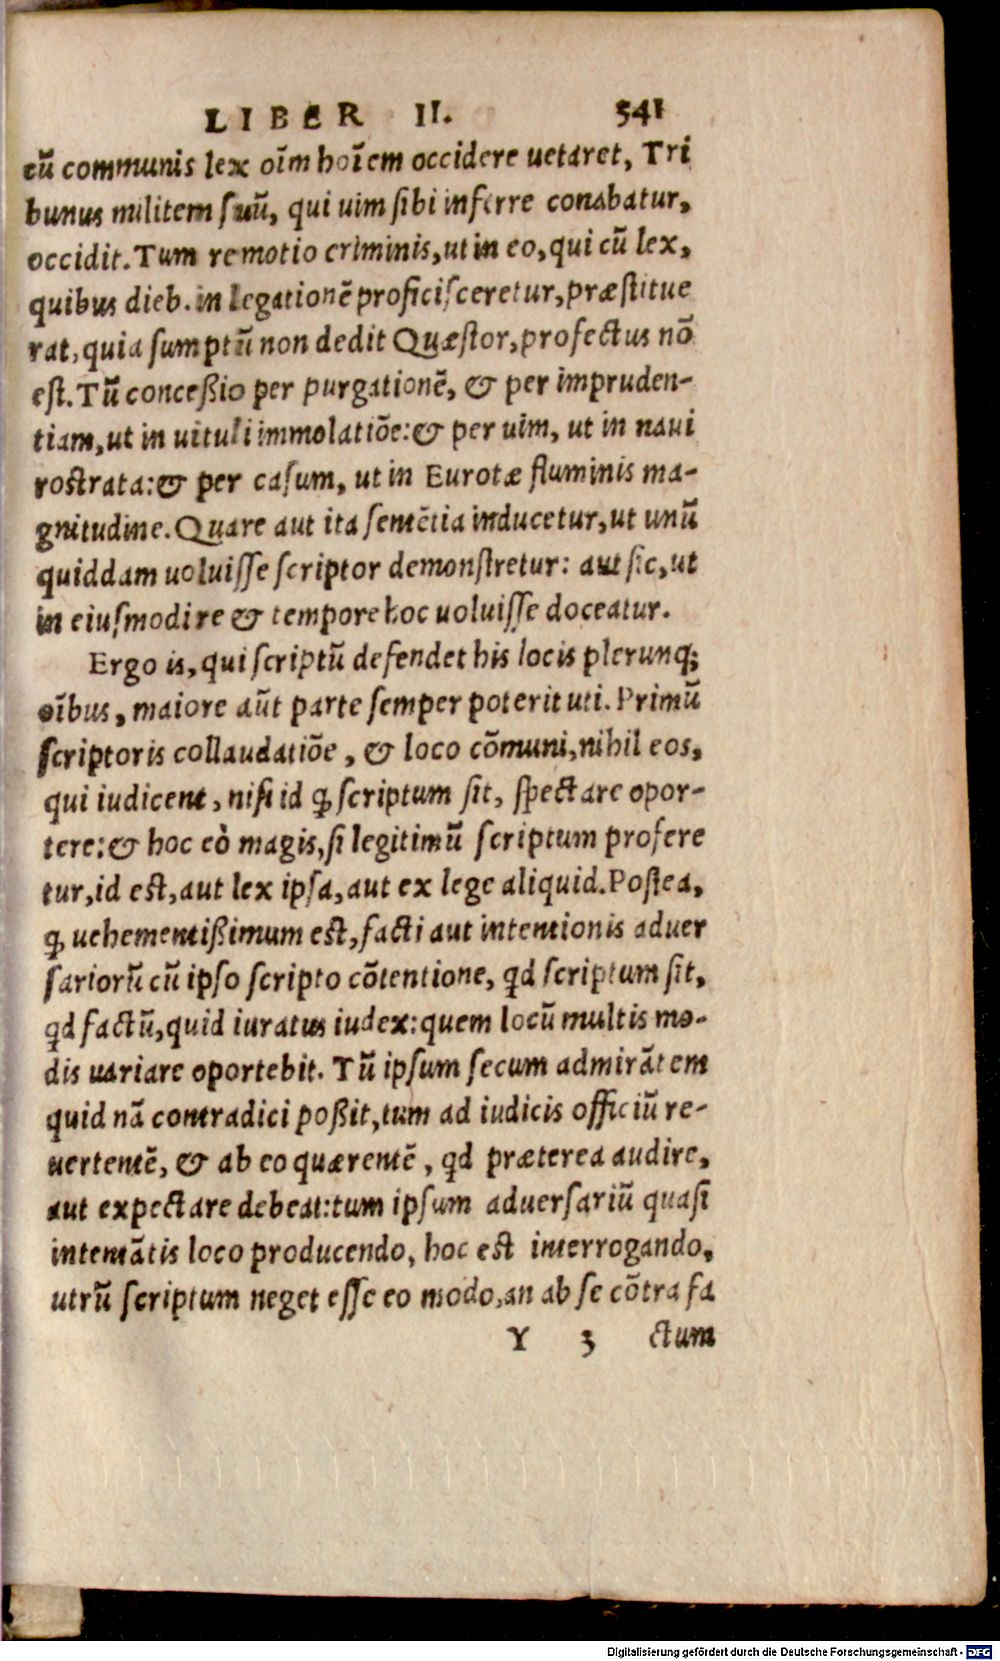 LIBER II. 541
cū communis lex oīm hoīem occidere uetaret, Tri
bunus militem suū, qui uim sibi inferre conabatur,
occidit. Tum remotio criminis, ut in eo, qui cū lex,
quibus dieb. in legationē proficisceretur, præstitue
rat, quia sumptū non dedit Quæstor, profectus nō
est. Tū conceßio per purgationē, & per impruden-
tiam, ut in uituli immolatiōe: & per uim, ut in naui
rostrata: & per casum, ut in Eurotæ fluminis ma-
gnitudine. Quare aut ita sentētia inducetur, ut unū
quiddam uoluisse scriptor demonstretur: aut sic, ut
in eiusmodi re & tempore hoc uoluisse doceatur.
Ergo is, qui scriptū defendet his locis plerunq;
oībus, maiore aūt parte semper poterit uti. Primū
scriptoris collaudatiōe, & loco cōmuni, nihil eos,
qui iudicent, nisi id ꝙ scriptum sit, spectare opor-
tere: & hoc eò magis, si legitimū scriptum profere
tur, id est, aut lex ipsa, aut ex lege aliquid. Postea,
ꝙ uehementißimum est, facti aut intentionis aduer
sariorū cū ipso scripto cōtentione, qd scriptum sit,
qd factū, quid iuratus iudex: quem locū multis mo-
dis uariare oportebit. Tū ipsum secum admirātem
quid nā contradici poßit, tum ad iudicis officiū re-
uertentē, & ab eo quærentē, qd præterea audire,
aut expectare debeat: tum ipsum aduersariū quasi
intentātis loco producendo, hoc est interrogando,
utrū scriptum neget esse eo modo, an ab se cōtra fa
Y 3 ctum
Digitalisierung gefördert durch die Deutsche Forschungsgemeinschaft - DFG